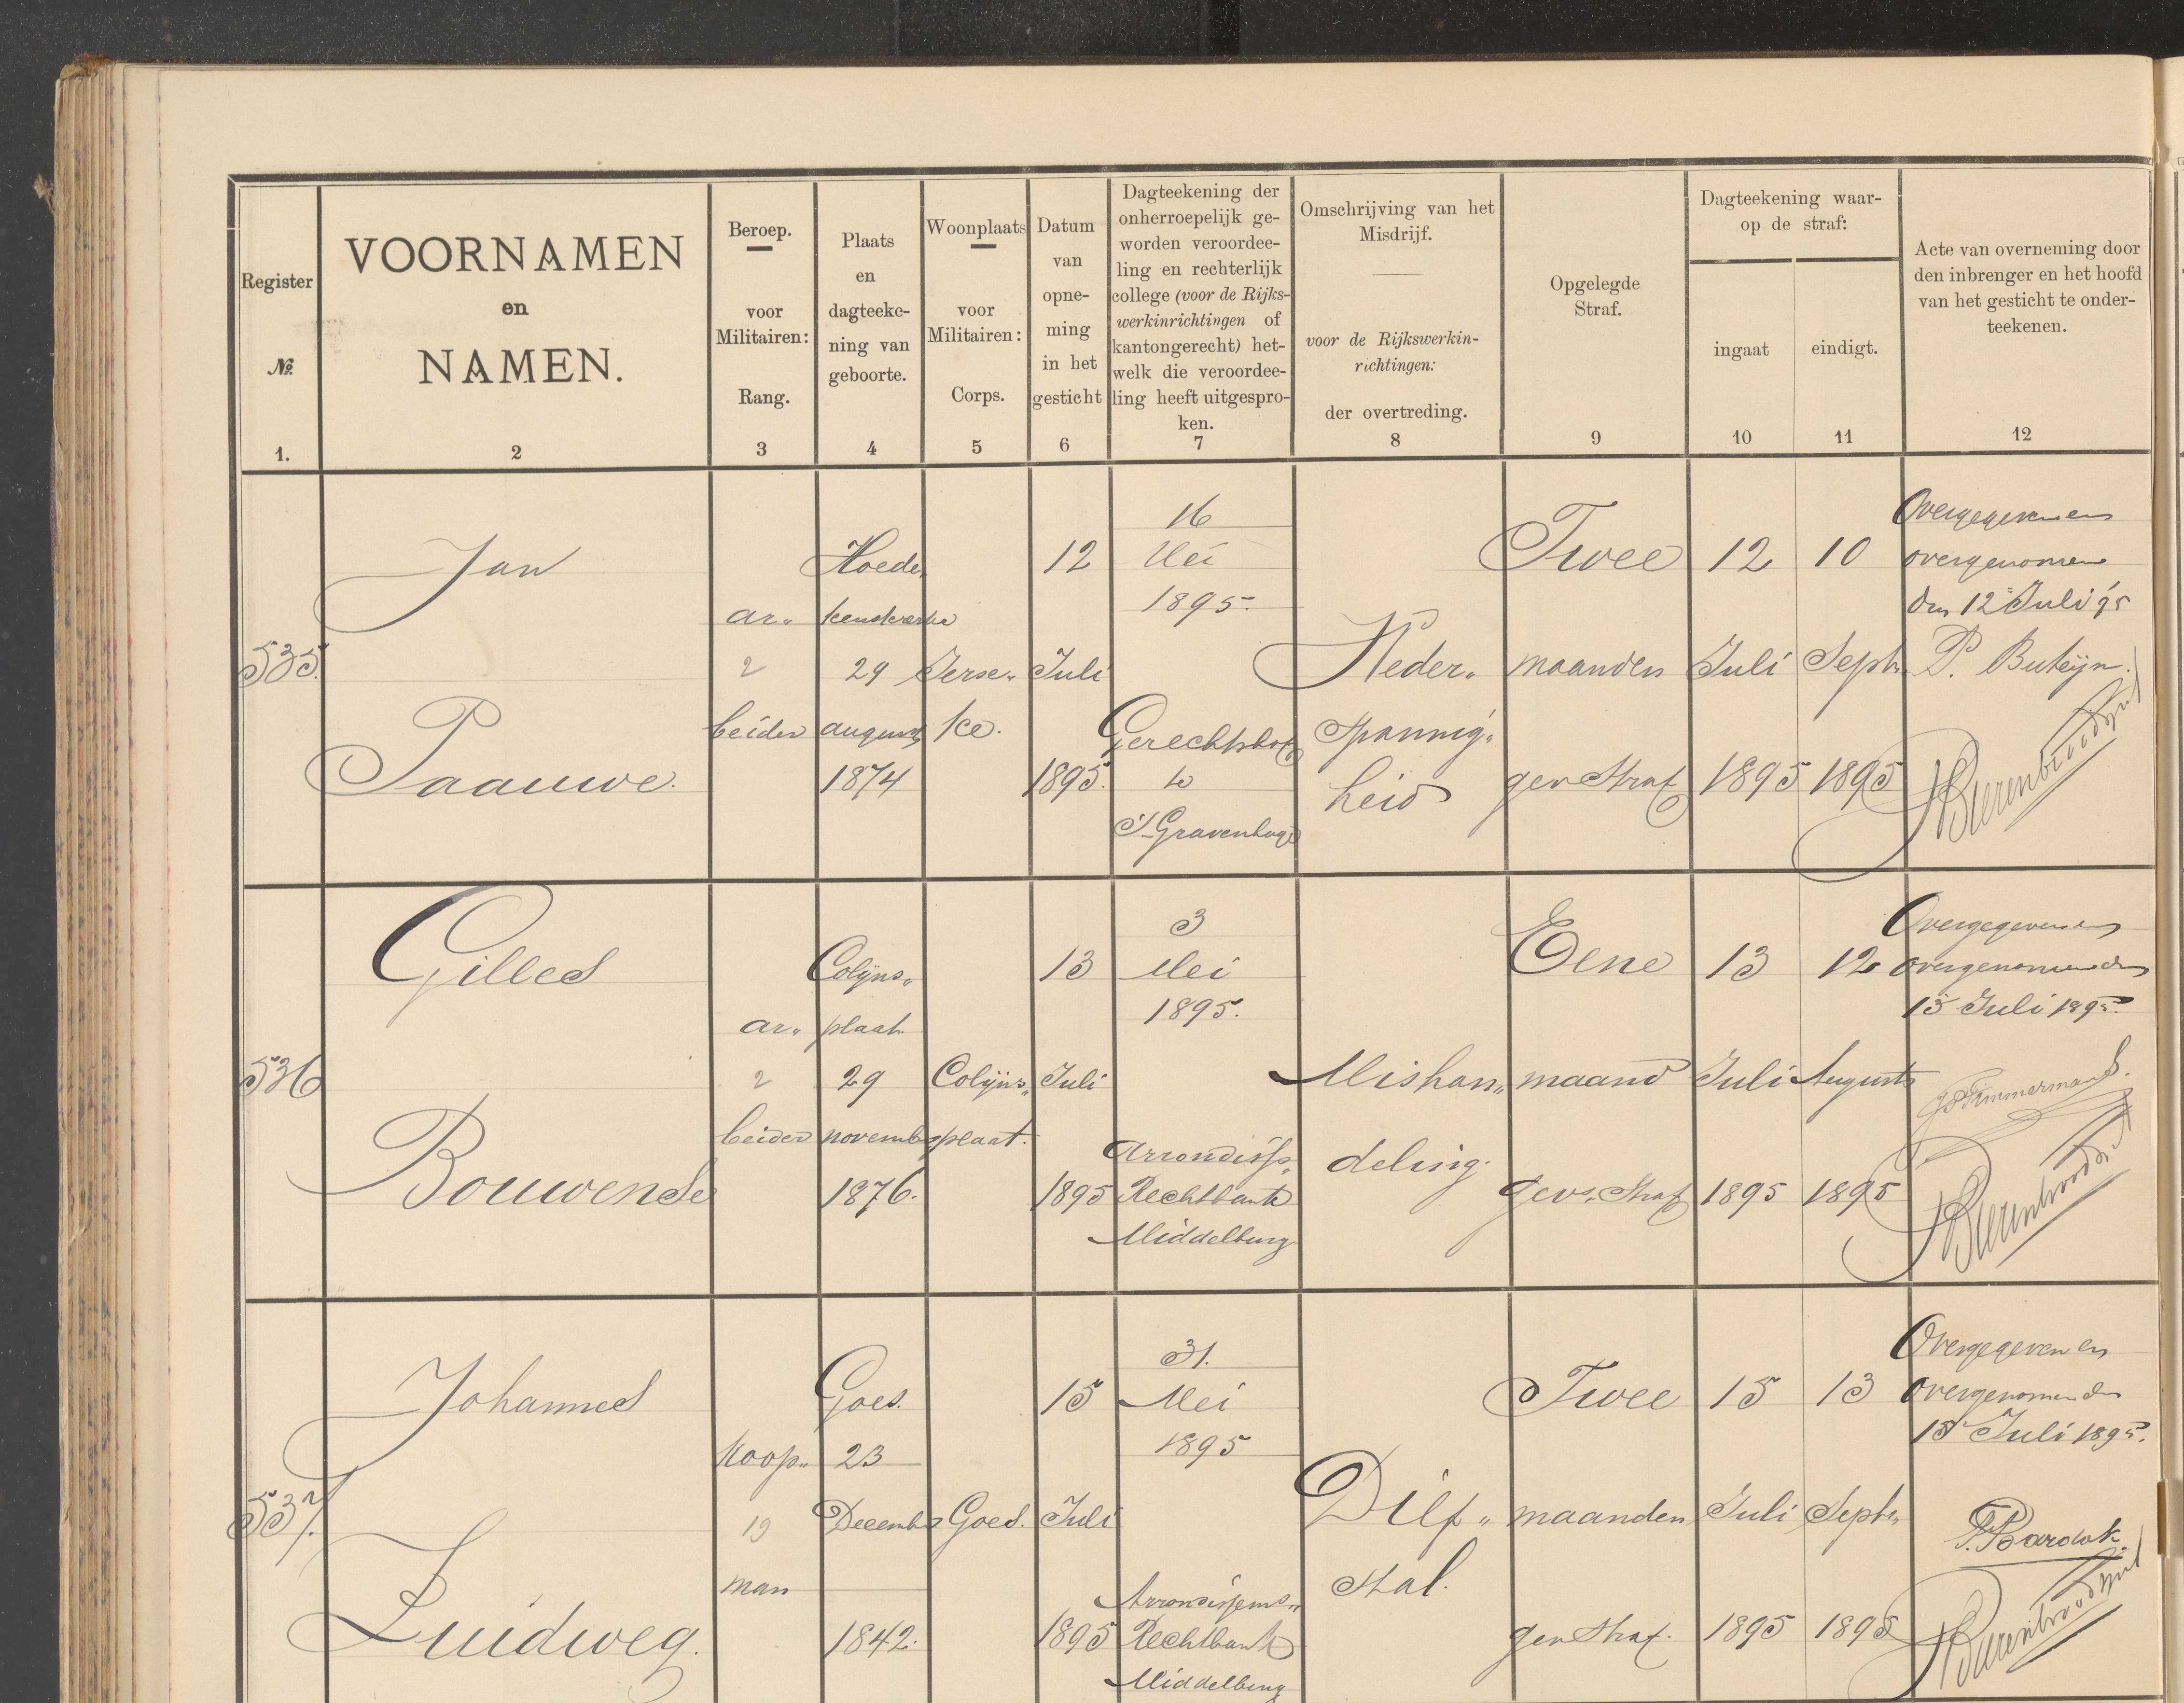 Register
№
1.
VOORNAMEN
en
NAMEN.
2
Beroep.
voor
Militairen:
Rang.
3
Plaats
en
dagteeke-
ning van
geboorte.
4
Woonplaats
voor
Militairen:
Corps.
5
Datum
van
opne-
ming
in het
gesticht
6
Dagteekening der
onherroepelijk ge-
worden veroordee-
ling en rechterlijk
college (voor de Rijks-
werkinrichtingen of
kantongerecht) het-
welk die veroordee-
ling heeft uitgespro-
ken.
7
Omschrijving van het
Misdrijf.
voor de Rijkswerkin-
richtingen:
der overtreding.
8
Opgelegde
Straf.
9
Dagteekening waar-
op de straf:
ingaat
10
eindigt.
11
Acte van overneming door
den inbrenger en het hoofd
van het gesticht te onder-
teekenen.
12
535.
Jan
Paauwe.
ar„
2
beider
Hoede„
kenskerke
29
augusts
1874
Ierse„
ke.
12
Juli
1895.
16
Mei
1895.
Gerechtshof
te
s'Gravenhage
Weder„
spannig„
heid
Twee
maanden
gev Straf
12
Juli
1895
10
Septr
1895
Overgegeven en
overgenomen
den 12 Juli 95
P. Buteijn.
536
Gilles
Bouwense
ar„
2
beider
Colijns„
plaat.
29
novembr
1876.
Colijns„
plaat.
13
Juli
1895
3
Mei
1895.
Arrondiss„
Rechtbank
Middelburg
Mishan„
deling.
Eene
maand
gevs. Straf
13
Juli
1895
12
Augusts
1895
Overgegeven en
overgenomen den
13 Juli 1895.
Timmermans.
537.
Johannes
Zuidweg.
Koop„
19
man
Goes.
23
Decembr
1842.
Goes.
15
Juli
1895
31.
Mei
1895
Arrondissems„
Rechtbank
Middelburg
Dief„
stal.
Twee
maanden
gev Straf.
15
Juli
1895
13
Septr
1895
Overgegeven en
overgenomen den
15 Juli 1895.